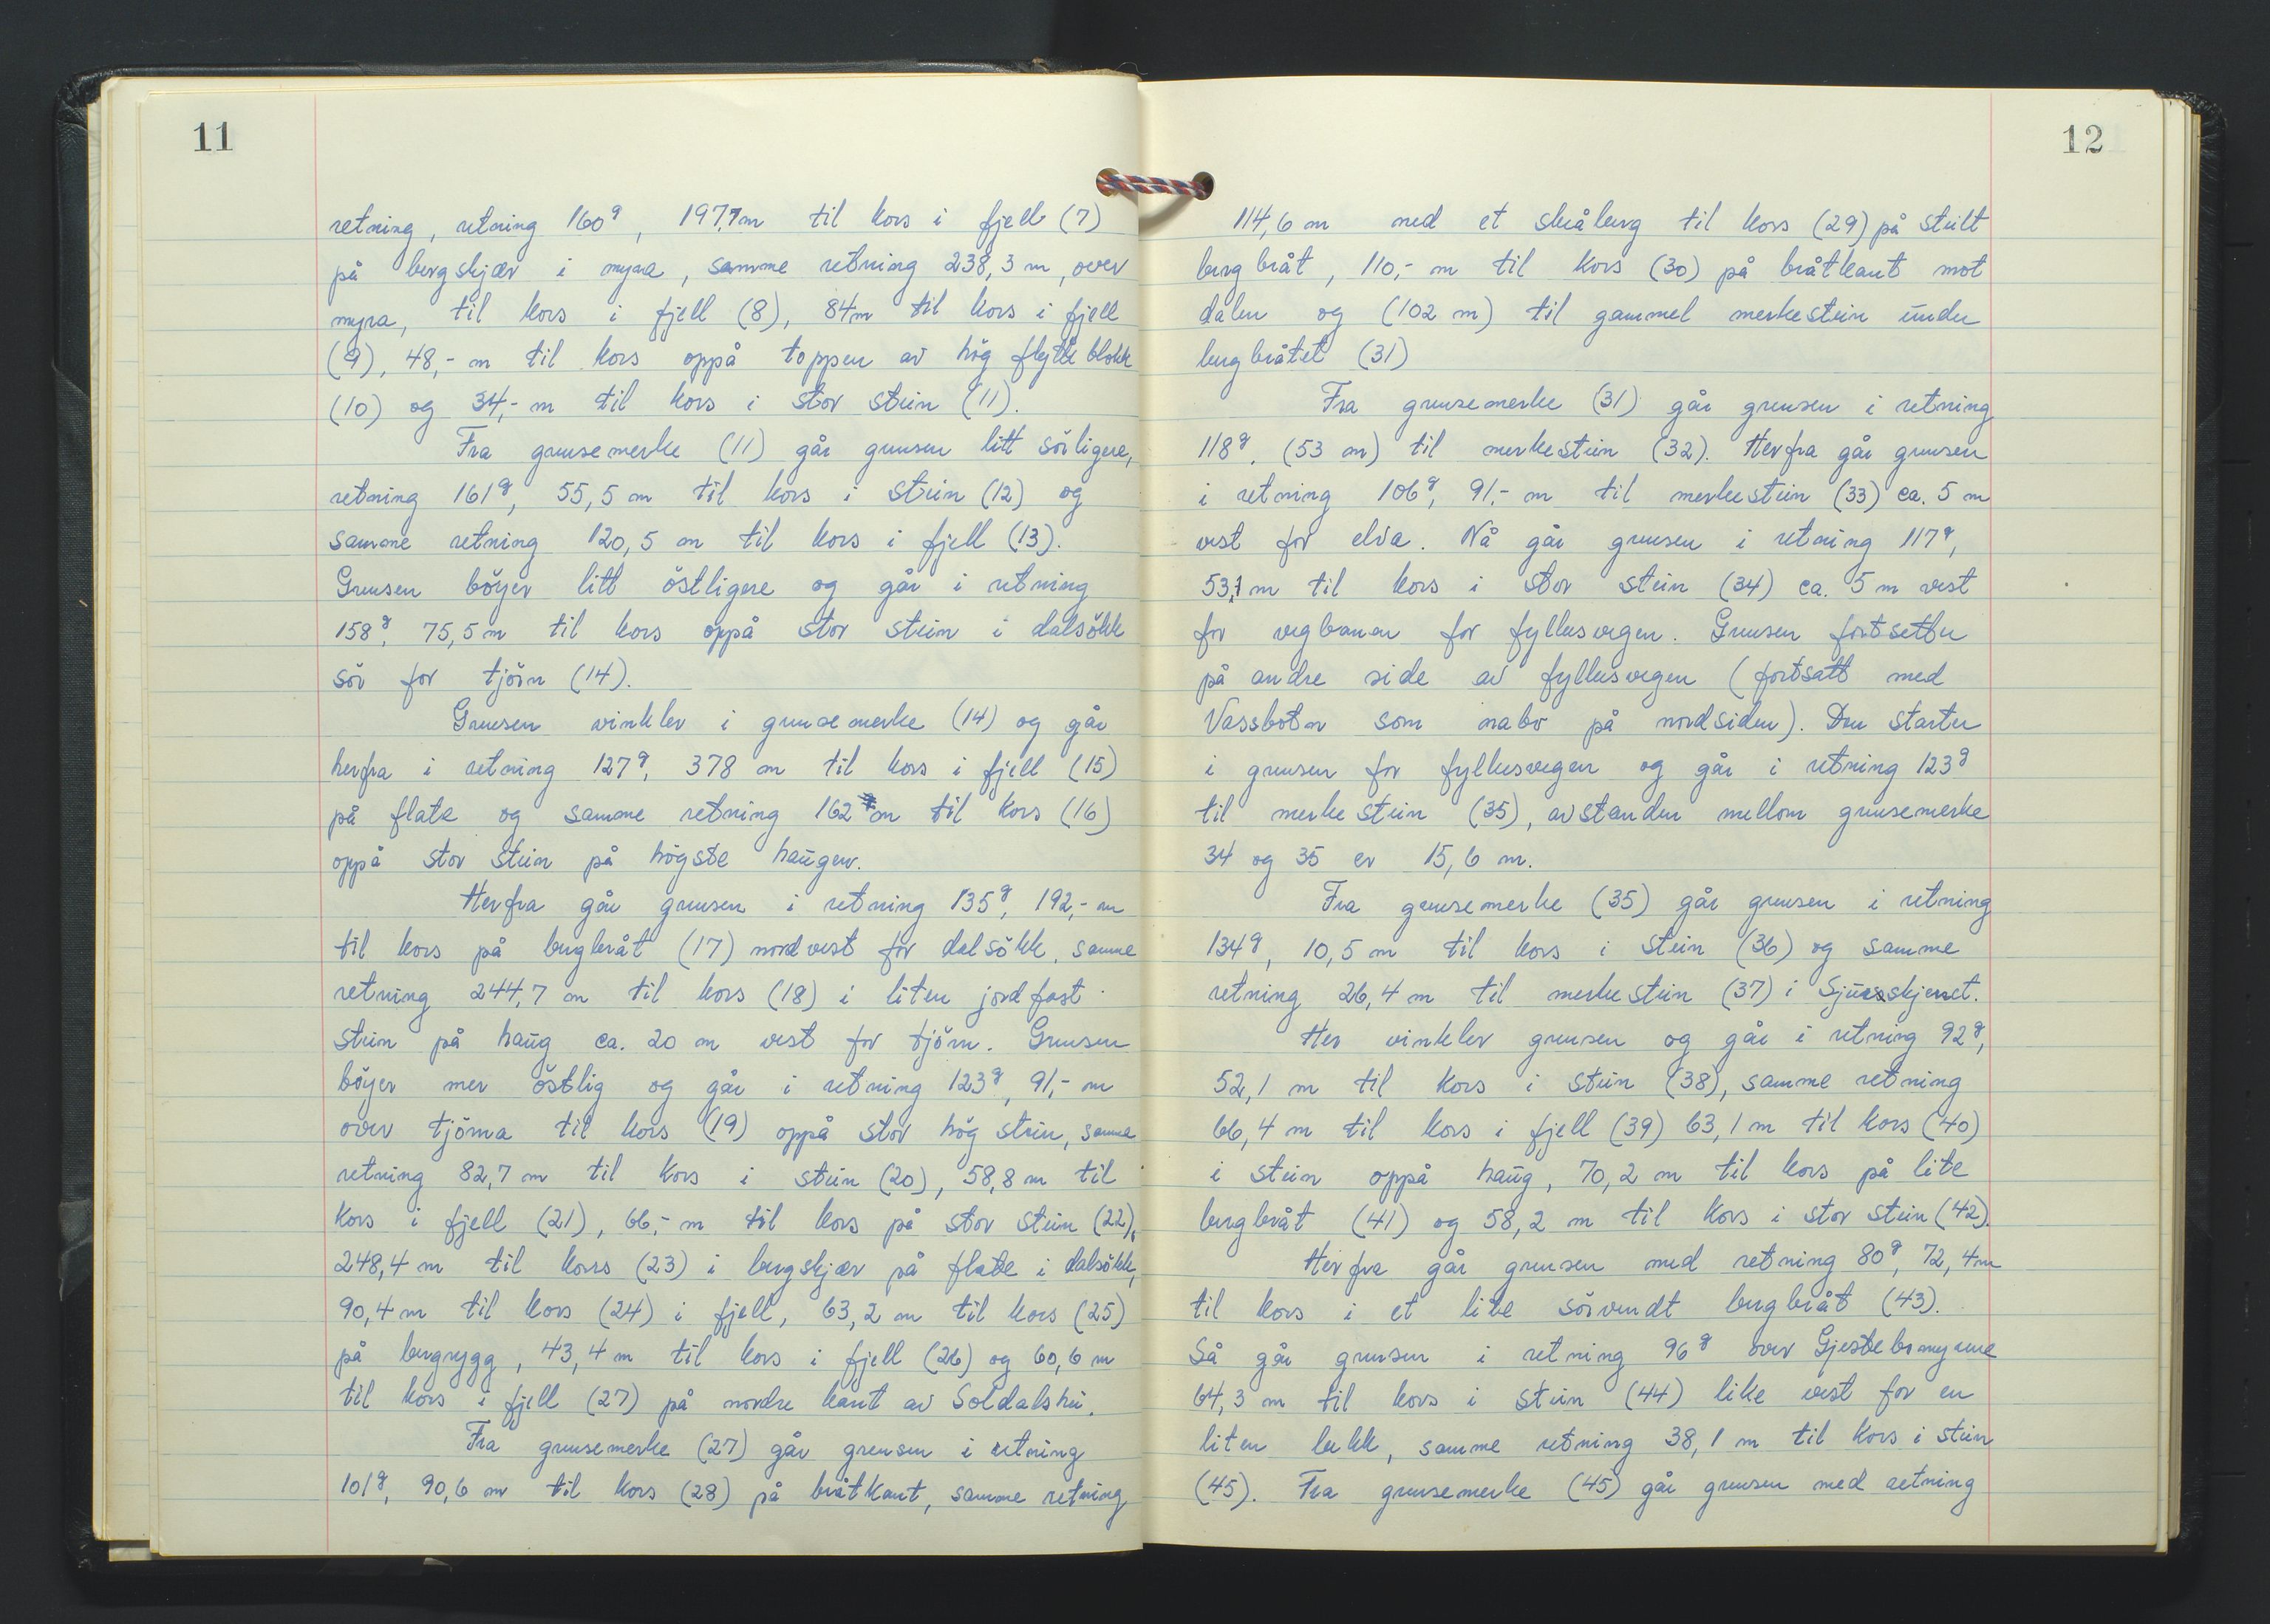 11
retning, retning 160g, 197,7m til kors i fjell (7)
på bergskjær i myra, samme retning 238,3 m, over
myra, til kors i fjell (8), 84m til kors i fjell
(9), 48,- m til kors oppå toppen av hög flytteblokk
(10) og 34,- m til kors i stor stein (11).
Fra grensemerke (11) går grensen litt sörligere,
retning 161g, 55,5 m til kors i stein (12) og
samme retning 120,5 m til kors i fjell (13).
Grensen böyer litt östligere og går i retning
158g, 75,5m til kors oppå stor stein i dalsökk
sör for tjörn (14).
Grensen vinkler i grensemerke (14) og går
herfra i retning 127g, 378 m til kors i fjell (15)
på flate og samme retning 162 m til kors (16)
oppå stor stein på högste haugen.
Herfra går grensen i retning 135g, 192,- m
til kors på bergbråt (17) nordvest for dalsökk, samme
retning 244,7 m til kors (18) i liten jordfast
stein på haug ca. 20 m vest for tjörn. Grensen
böyer mer östlig og går i retning 123g, 91,- m
over tjörna til kors (19) oppå stor hög stein, samme
retning 82,7 m til kors i stein (20), 58,8 m til
kors i fjell (21), 66,- m til kors på stor stein (22),
248,4 m til korss (23) i bergskjær på flate i dalsökk,
90,4 m til kors (24) i fjell, 63,2 m til kors (25)
på bergrygg, 43,4 m til kors i fjell (26) og 60,6 m
til kors i fjell (27) på nordre kant av Soldalshei.
Fra grensemerke (27) går grensen i retning
101g, 90,6 m til kors (28) på bråtkant, samme retning
12
114,6 m ned et skråberg til kors (29) på steilt
bergbråt, 110,- m til kors (30) på bråtkant mot
dalen og (102 m) til gammel merkestein under
bergbråtet (31)
Fra grensemerke (31) går grensen i retning
118g, (53 m) til merkestein (32). Herfra går grensen
i retning 106g, 91,- m til merkestein (33) ca. 5 m
vest for elva. Nå går grensen i retning 117g,
53,1 m til kors i stor stein (34) ca. 5 m vest
for vegbanen for fylkesvegen. Grensen fortsetter
på andre side av fylkesvegen (fortsatt med
Vassbotn som nabo på nordsiden). Den starter
i grensen for fylkesvegen og går i retning 123g
til merkestein (35), avstanden mellom grensemerke
34 og 35 er 15,6 m.
Fra grensemerke (35) går grensen i retning
134g, 10,5 m til kors i stein (36) og samme
retning 26,4 m til merkestein (37) i skjeret.
Her vinkler grensen og går i retning 92g,
52,1 m til kors i stein (38), samme retning
66,4 m til kors i fjell (39) 63,1 m til kors (40)
i stein oppå haug, 70,2 m til kors på lite
bergbråt (41) og 58,2 m til kors i stor stein (42).
Herfra går grensen med retning 80g, 72,4m
til kors i et lite sörvendt bergbråt (43).
Så går grensen i retning 96g over Gjestebomyrene
64,3 m til kors i stein (44) like vest for en
liten bekk, samme retning 38,1 m til kors i stein
(45). Fra grensemerke (45) går grensen med retning